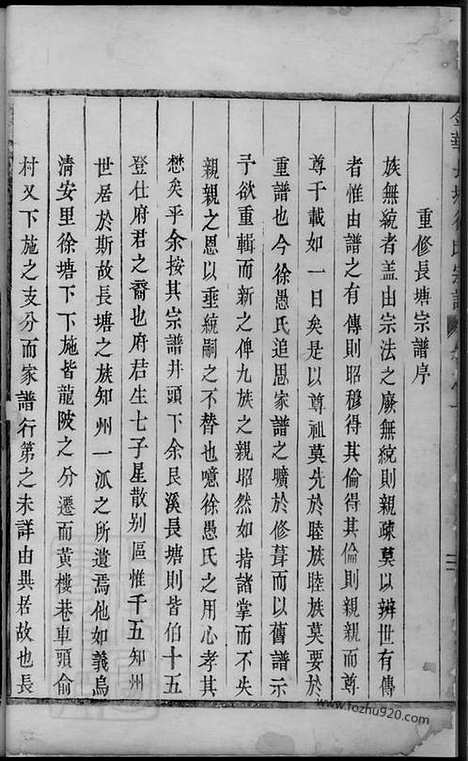 重修長塘宗譜序
族無統者盖由宗法之廢無統則親疎莫以辨世有傳
者惟由譜之有傳則昭穆得其倫得其倫則親親而尊
尊于載如一日矣是以尊祖莫先於睦族睦族莫要於
重譜也今徐愚氏追思家譜之曠於修葺而以舊譜示
予欲重輯而新之俾九族之親昭然如指諸掌而不失
親親之恩以垂統嗣之不替也噫徐愚氏之用心孝其
懋矣乎余按其宗譜井頭下余艮溪長塘則皆伯十五
登仕府君之裔也府君生七子星散别區惟千五知州
世居於斯故長塘之族知州一派之所遺焉他如義烏
清安里徐塘下下施皆龍陂之分遷而黄樓巷車頭俞
村又下施之支分而家譜行第之未詳由異居故也長
金華長塘徐氏宗譜
www.fozhu920.com